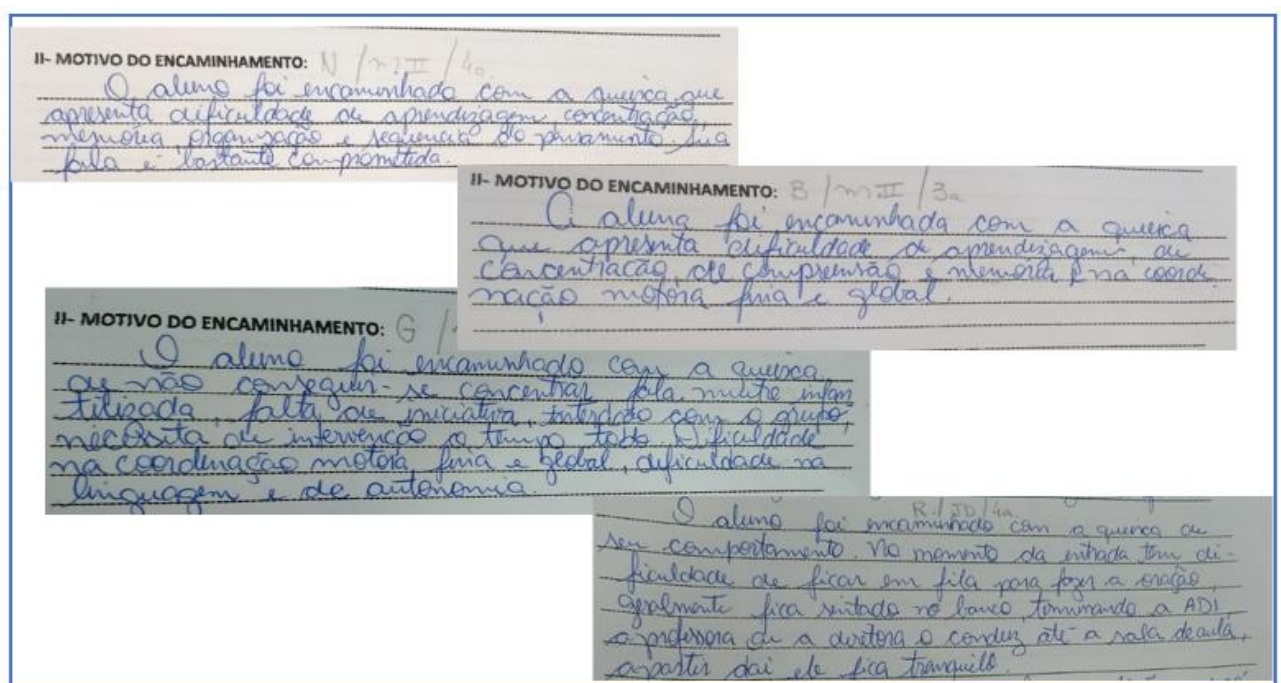 II- MOTIVO DO ENCAMINHAMENTO: N / mII / 4a
O aluno foi encaminhado com a queixa que
apresenta dificuldade de aprendizagem, concentração,
memória, organização e sequencia do pensamento sua
fala é bastante comprometida.
II- MOTIVO DO ENCAMINHAMENTO: B / mII / 3a
A aluna foi encaminhada com a queixa
que apresenta dificuldade de aprendizagem, de
concentração, de compreensão e memória e na coorde
nação motora fina e global.
II- MOTIVO DO ENCAMINHAMENTO: G /
O aluno foi encaminhado com a queixa
de não conseguir se concentrar, fala muito infan
tilizada, falta de iniciativa, interação com o grupo,
necessita de intervenção o tempo todo. Dificuldade
na coordenação motora fina e global, dificuldade na
linguagem e de autonomia.
R. / JD / 4a
O aluno foi encaminhado com a queixa de
seu comportamento. No momento da entrada tem di-
ficuldade de ficar em fila para fazer a oração,
geralmente fica sentado no banco, terminando a ADI,
a professora ou a diretora o conduz até a sala de aula,
apartir dai ele fica tranquilo.